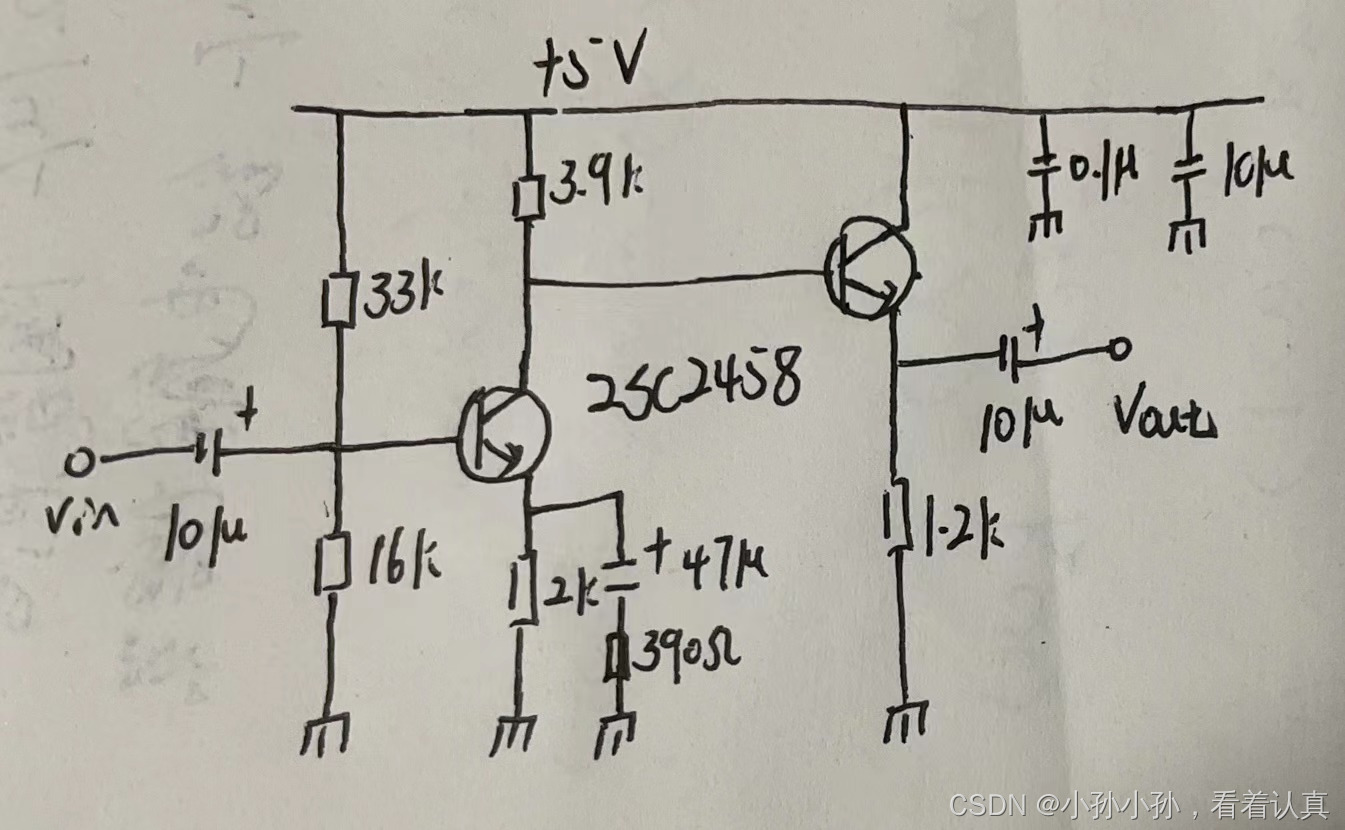 +5V
3.9k
0.1μ
10μ
33k
2SC2458
+
+
Vin
10μ
10μ
Vout
16k
2k
+
47μ
1.2k
390Ω
CSDN @小孙小孙，看着认真